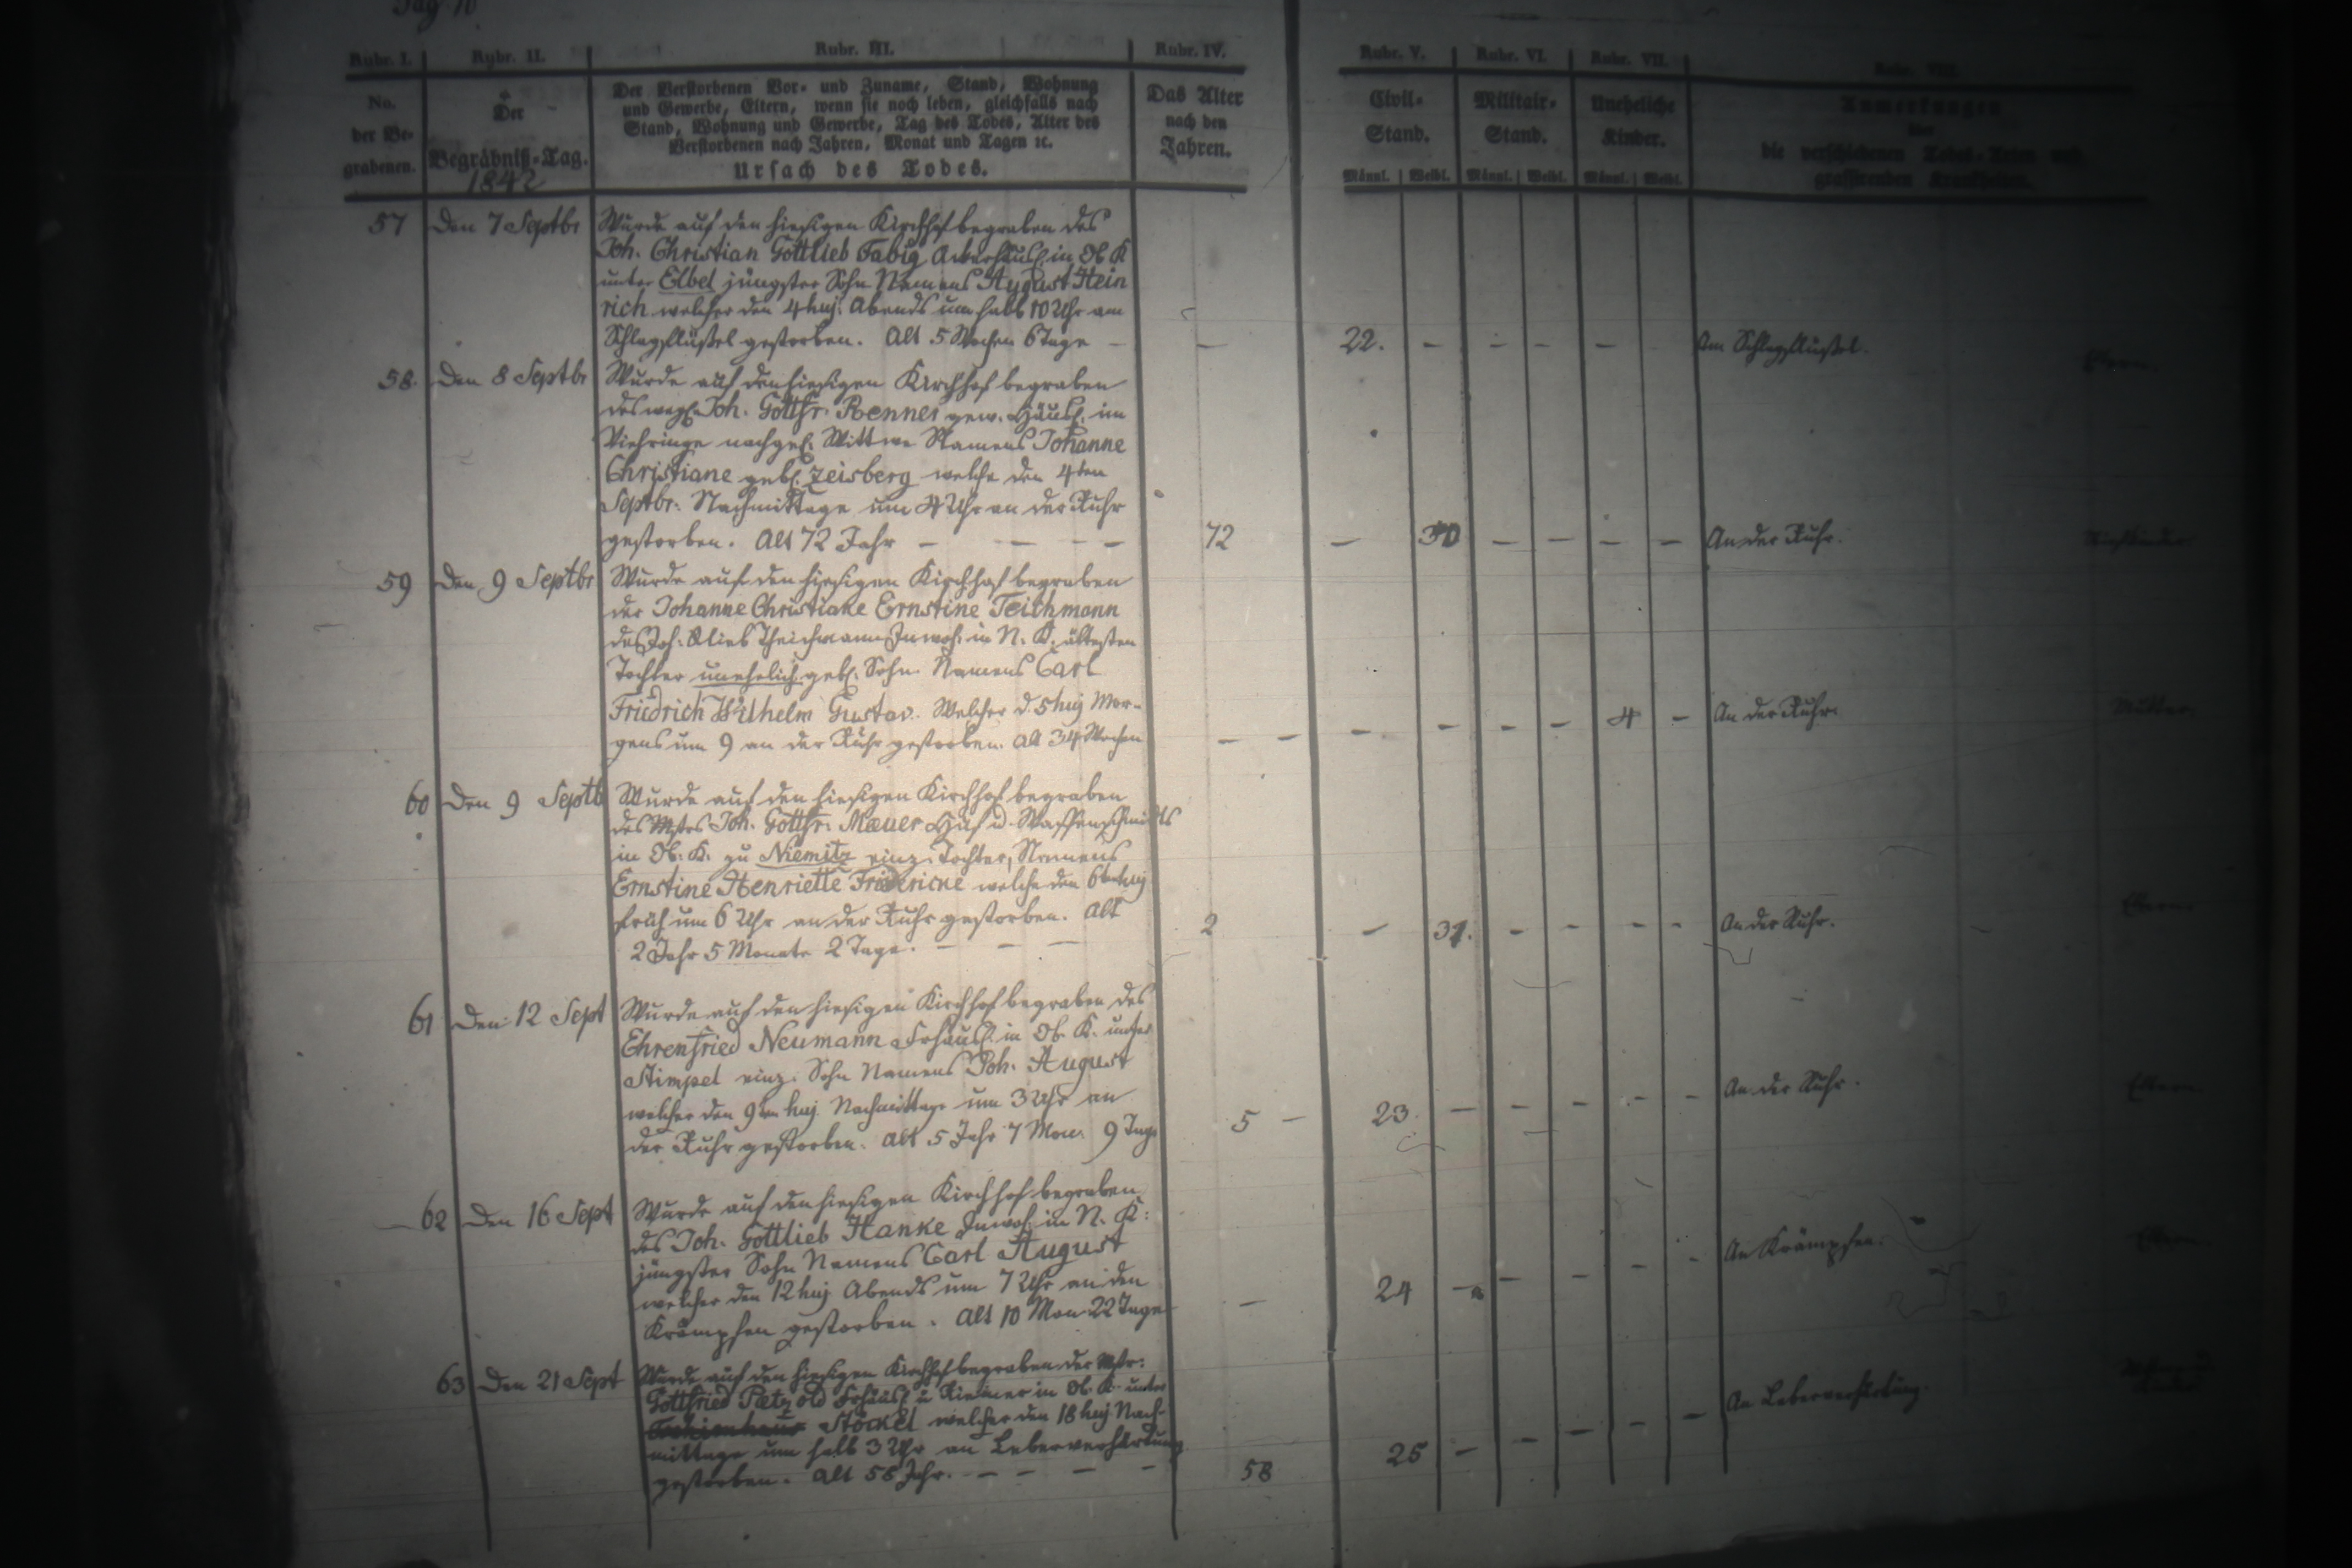 Pag 10
Rubr. I. Rubr. II. Rubr. III. Rubr. IV. Rubr. V. Rubr. VI. Rubr. VII. Rubr. VIII.
No. der Begrabenen.
Der Begräbniß-Tag.
1842
Der Verstorbenen Vor- und Zuname, Stand, Wohnung
und Gewerbe, Eltern, wenn sie noch leben, gleichfalls nach
Stand, Wohnung und Gewerbe, Tag des Todes, Alter des
Verstorbenen nach Jahren, Monat und Tagen ꝛc.
Ursach des Todes.
Das Alter
nach den
Jahren.
Civil-
Stand.
Militair-
Stand.
Uneheliche
Kinder.
Anmerkungen
über
die verschiedenen Todes-Arten und
grassirenden Krankheiten.
Männl. Weibl. Männl. Weibl. Männl. Weibl.
57 Den 7 Septbr Wurde auf den hiesigen Kirchhof begraben des
Joh. Christian Gottlieb Fabig Ackerhäusl. in Ob K
unter Elbel jüngster Sohn Namens August Hein
rich welcher den 4 huj. Abends um halb 10 Uhr am
Schlagflüßel gestorben. Alt 5 Wochen 6 Tage – – 22. – – – – Am Schlagflüßel.
58. Den 8 Septbr Wurde auf den hiesigen Kirchhof begraben
des Joh. Gottfr. Renner gew. Häusl. im
Viehringe nachgel. Wittwe Namens Johanne
Christiane geb. Zeisberg welche den 4ten
Septbr. Nachmittage um 4 Uhr an der Ruhr
gestorben. Alt 72 Jahr – – – – 72 – 30 – – – – An der Ruhr.
59 Den 9 Septbr Wurde auf den hiesigen Kirchhof begraben
der Johanne Christiane Ernstine Teichmann
des Joh. Glieb Theichmann Inwoh. in N. K. ältesten
Tochter unehelich geb. Sohn Namens Carl
Friedrich Wilhelm Gustav. Welcher d. 5 huj Mor-
gens um 9 an der Ruhr gestorben. Alt 34 Wochen – – – – – – 4 – An der Ruhr. Mutter
60 Den 9 Septb Wurde auf den hiesigen Kirchhof begraben
des Mstrs Joh. Gottfr. Mauer Huf u. Waffenschmidts
in Ob. K. zu Niemitz einz. Tochter, Namens
Ernstine Henriette Fridericke welche den 6ten huj
früh um 6 Uhr an der Ruhr gestorben. Alt
2 Jahr 5 Monate 2 Tage. – – – 2 – 31. – – – – An der Ruhr. Eltern
61 Den 12 Sept Wurde auf den hiesigen Kirchhof begraben des
Ehrenfried Neumann Frhäusl. in Ob. K. unter
Stimpel einz. Sohn Namens Joh. August
welcher den 9ten huj Nachmittage um 3 Uhr an
der Ruhr gestorben. Alt 5 Jahr 7 Mon. 9 Tage 5 – 23 – – – – – An der Ruhr. Eltern
62 Den 16 Sept Wurde auf den hiesigen Kirchhof begraben
des Joh. Gottlieb Hanke Inwoh. in N. K:
jüngster Sohn Namens Carl August
welcher den 12 huj Abends um 7 Uhr an den
Krämpfen gestorben. Alt 10 Mon 22 Tage – 24 – – – – – An Krämpfen. Eltern
63 Den 21 Sept Wurde auf den hiesigen Kirchhof begraben der Mstr:
Gottfried Pätzold Frhäusl. u Riemer in Ob. K. unter
Stöckel welcher den 18 huj Nach-
mittage um halb 3 Uhr an Leberverhärtung
gestorben. Alt 58 Jahr. – – – – 58 25 – – – – – An Leberverhärtung.